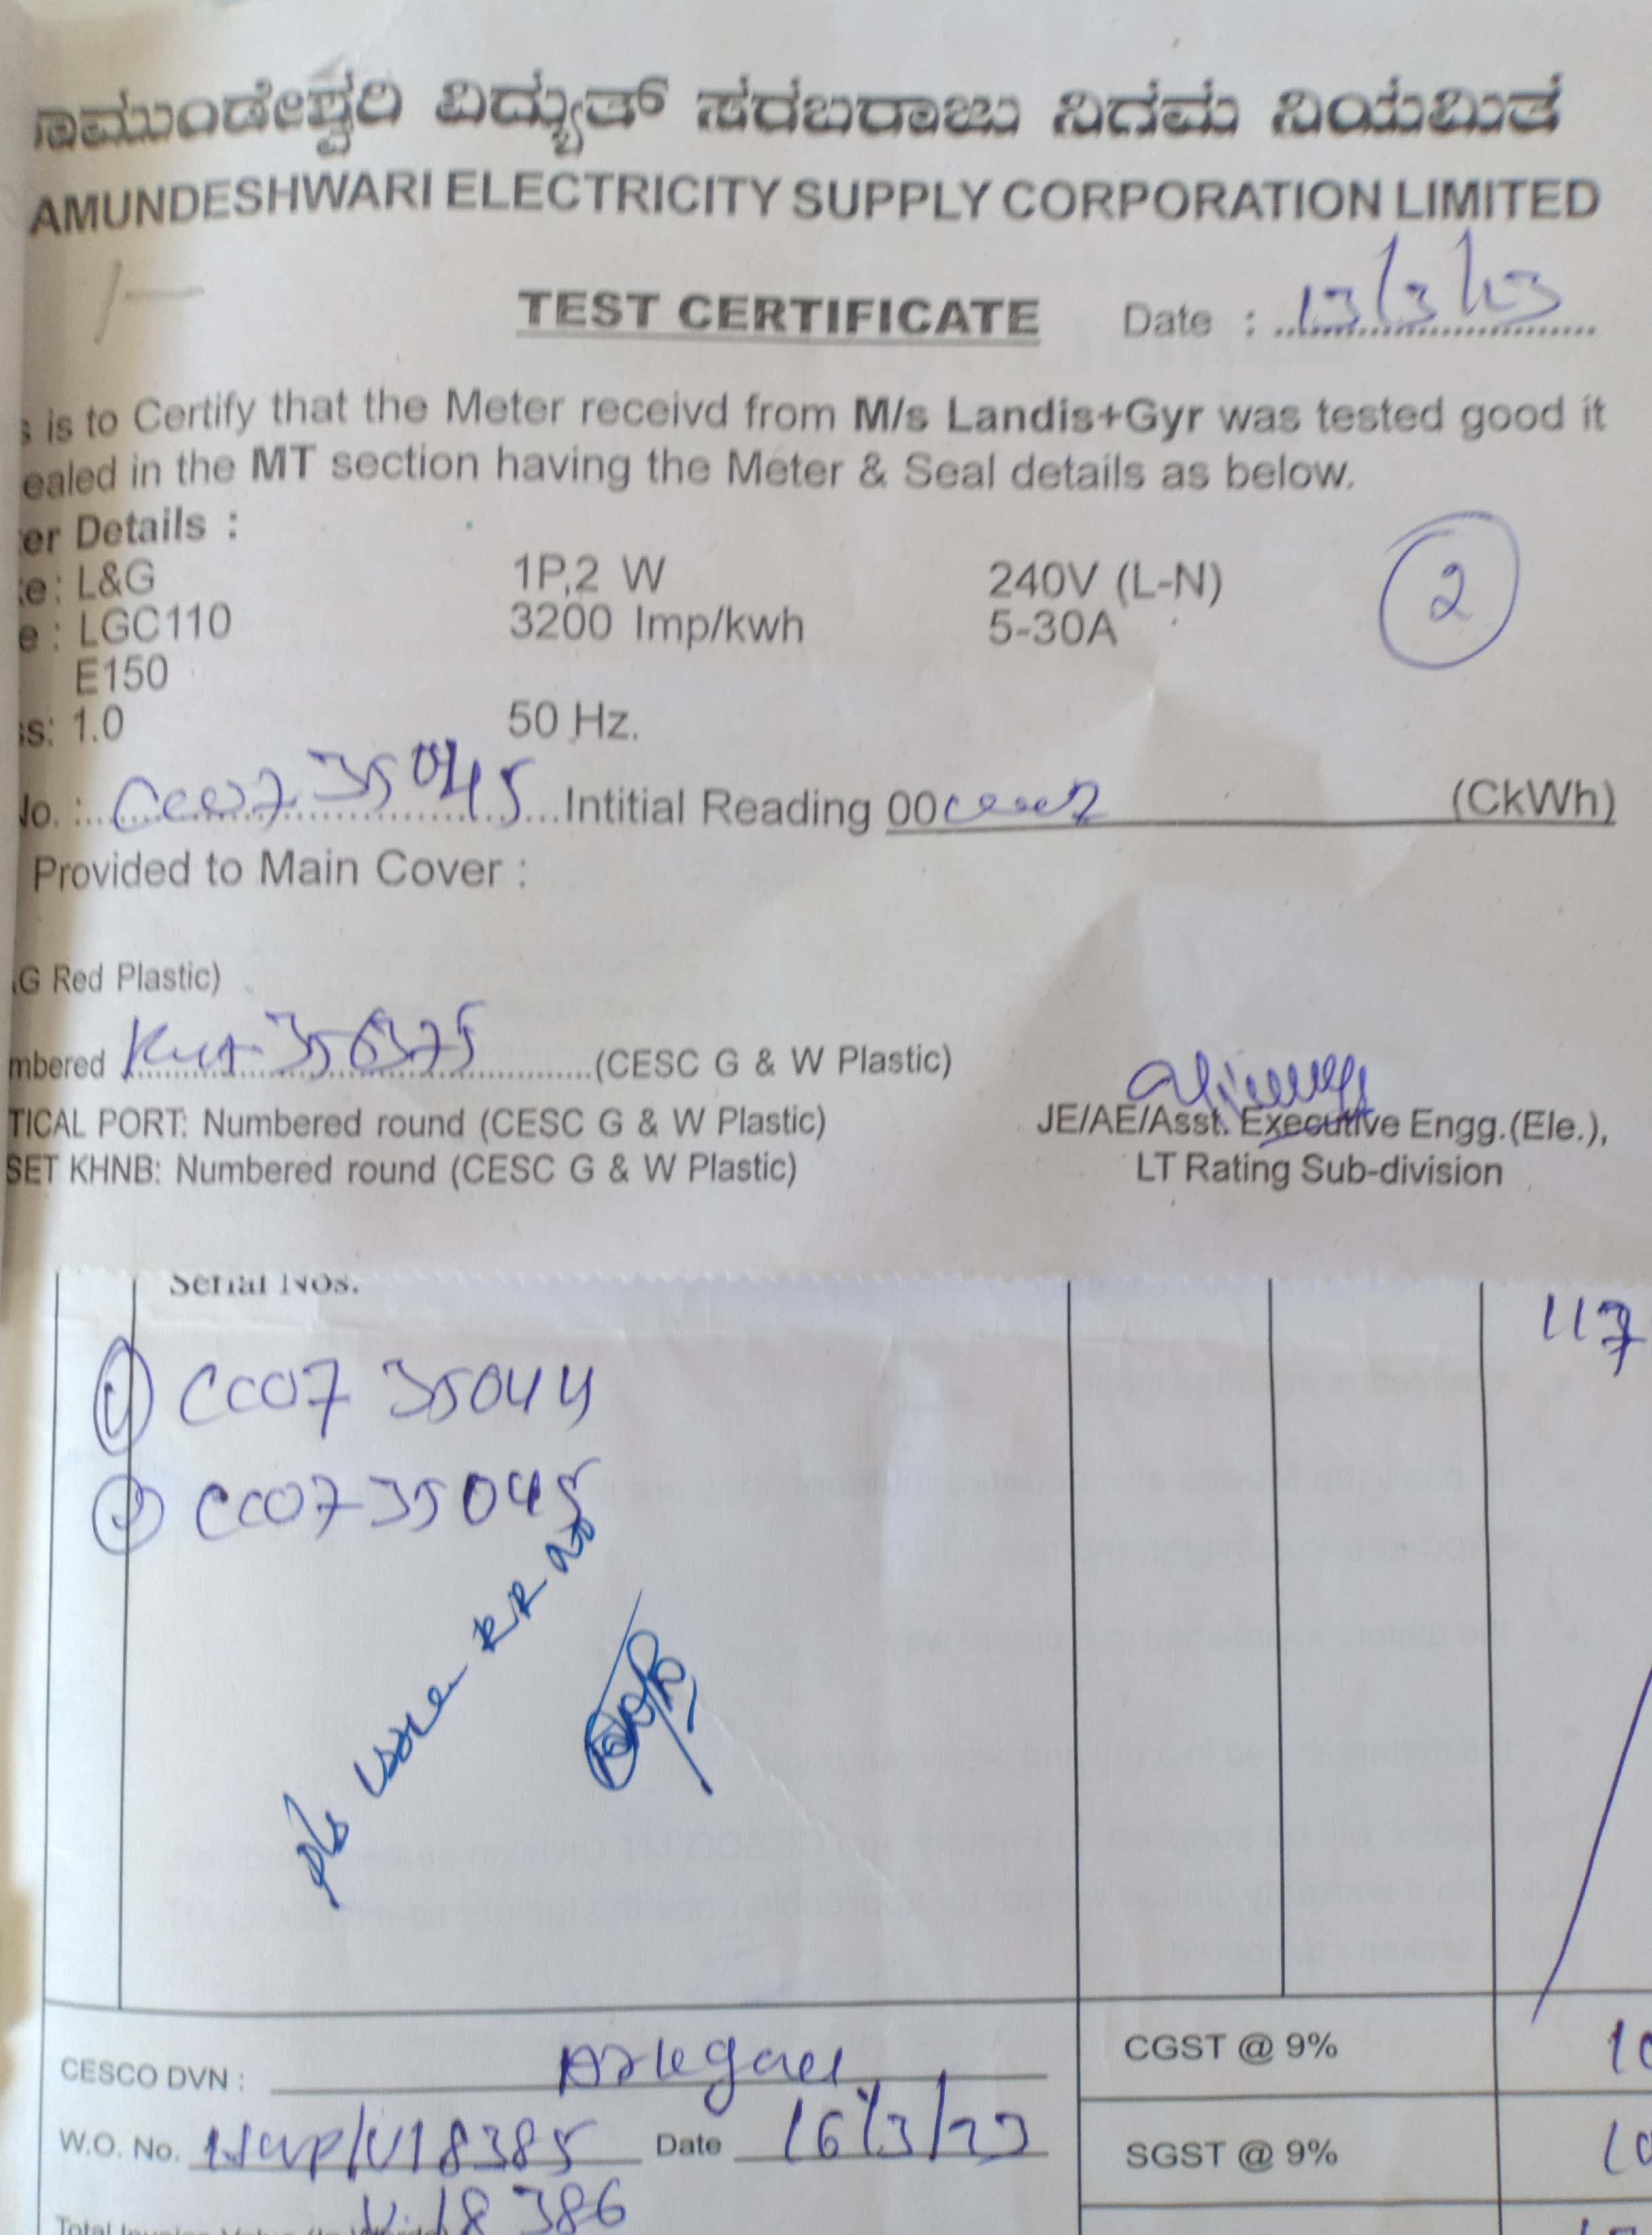 ಾಮುಂಡೇಶ್ವರಿ ವಿದ್ಯುತ್ ಸರಬರಾಜು ನಿಗಮ ನಿಯಮಿತ
AMUNDESHWARI ELECTRICITY SUPPLY CORPORATION LIMITED
TEST CERTIFICATE Date : 13/3/23
s is to Certify that the Meter receivd from M/s Landis+Gyr was tested good it
ealed in the MT section having the Meter & Seal details as below.
er Details :
2
e: L&G 1P,2 W 240V (L-N)
e : LGC110 3200 Imp/kwh 5-30A
E150
s: 1.0 50 Hz.
No. : CC0735045 Intitial Reading 00 (CkWh)
Provided to Main Cover :
G Red Plastic)
mbered 356375 (CESC G & W Plastic)
TICAL PORT: Numbered round (CESC G & W Plastic) JE/AE/Asst. Executive Engg.(Ele.),
SET KHNB: Numbered round (CESC G & W Plastic) LT Rating Sub-division
Serial Nos. 117
1 CC07 35044
2 CC0735045
RR no
CESCO DVN : CGST @ 9% 10
W.O. No. 18385 Date 16/3/23 SGST @ 9% 10
18386